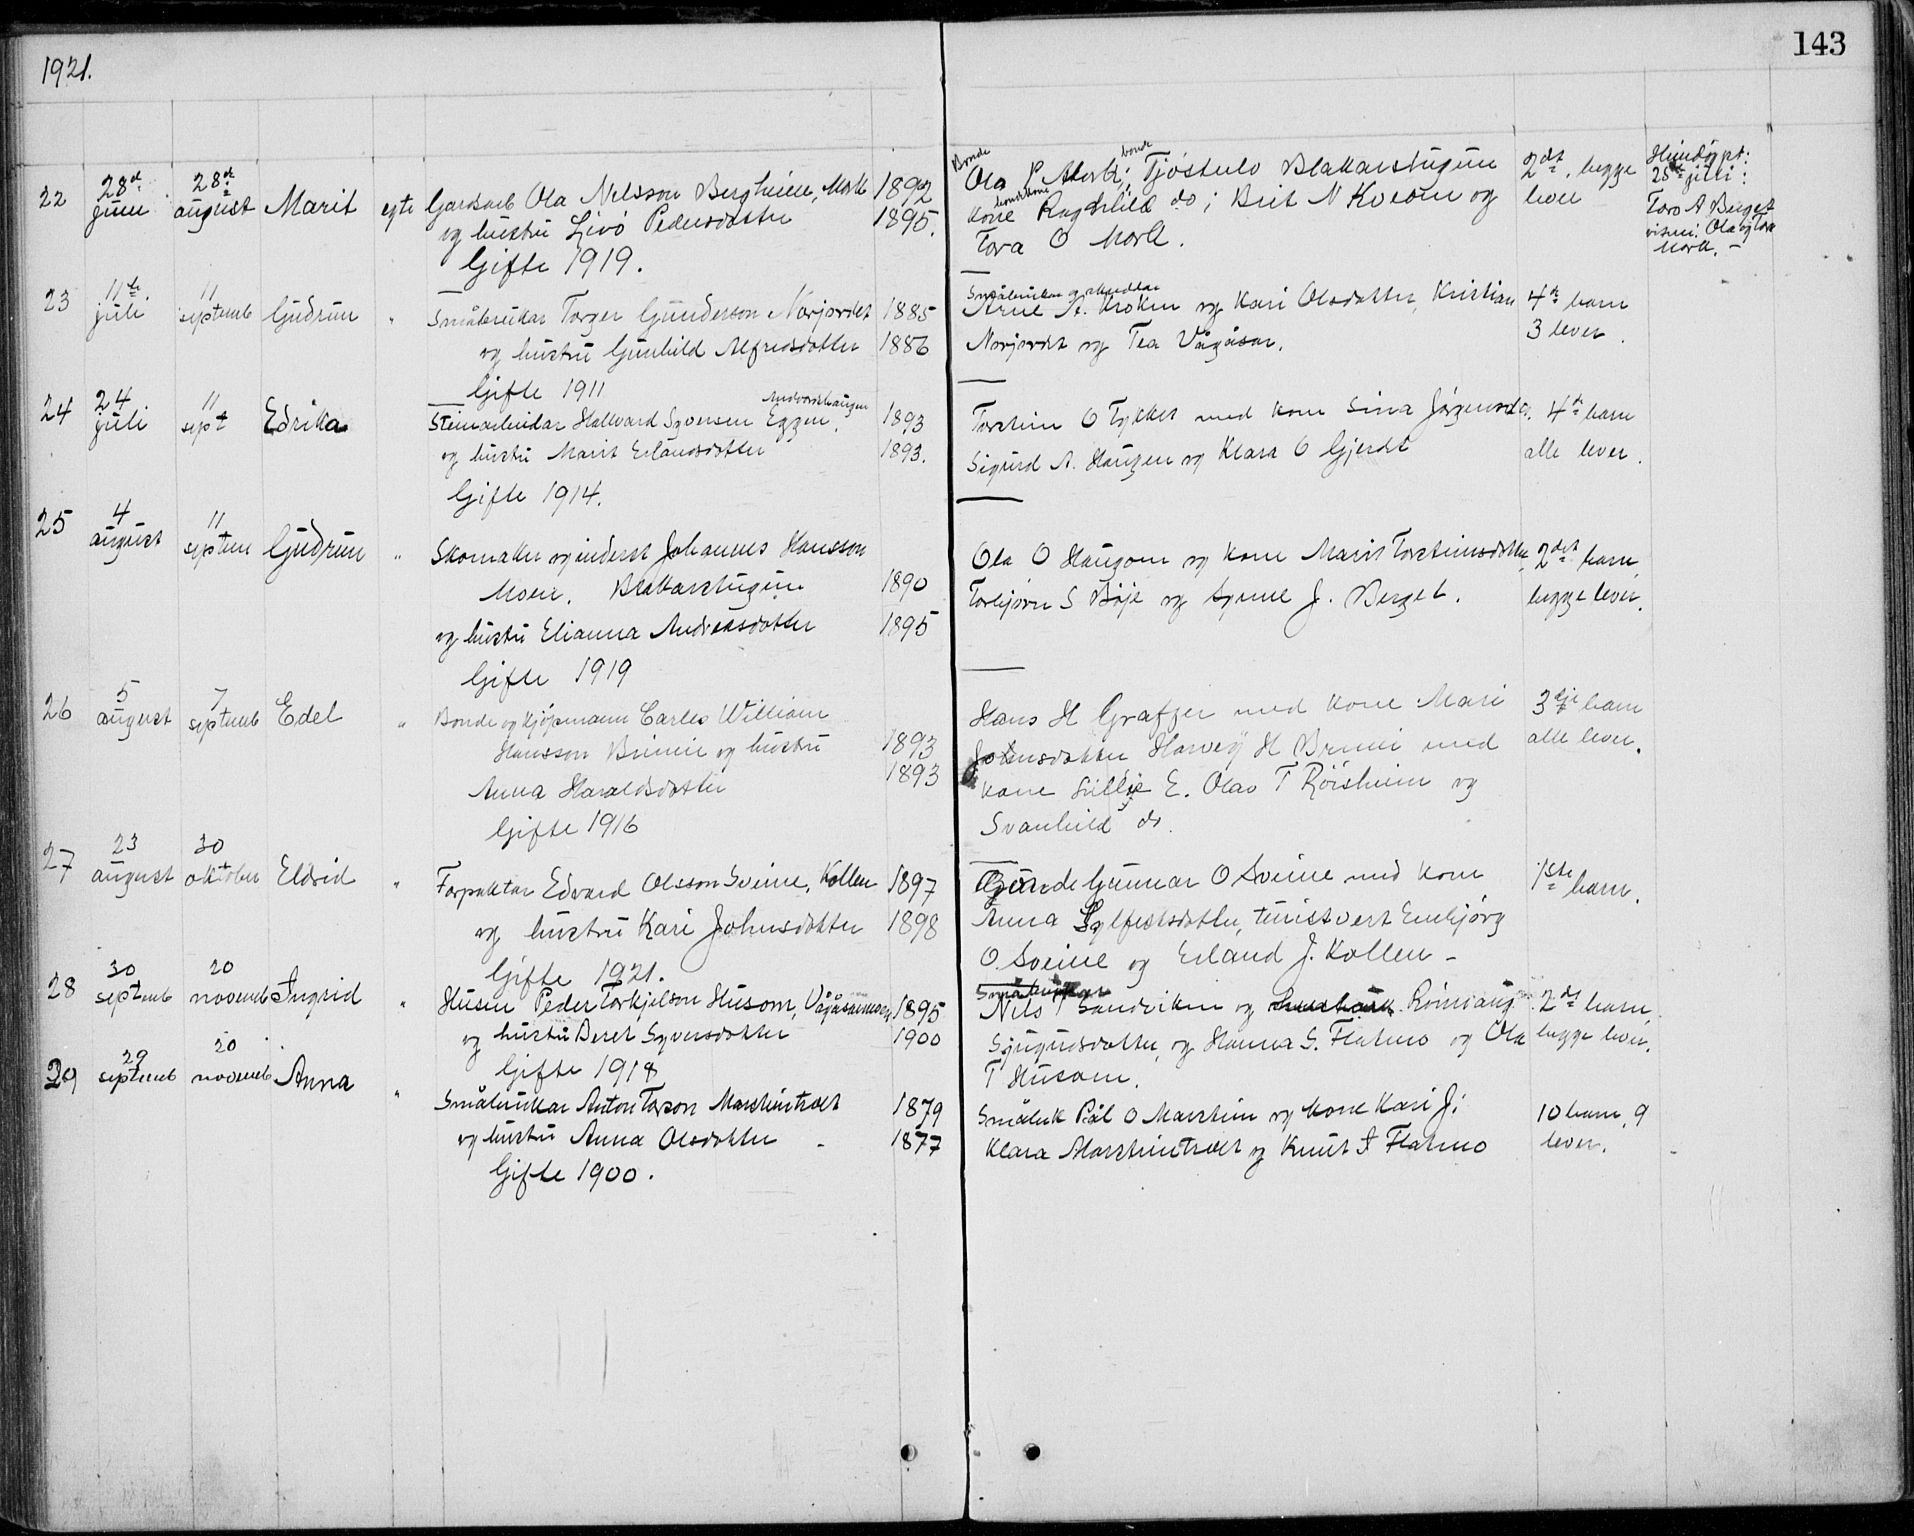 143
1921.
22 28de juni 28de august Marit egte Gardarb Ola Nilsson Bergheim, Mork 1892
og hustru Livó Pedersdotter 1895.
Gifte 1919.
Bonde bonde
Ola P Mork; Tjóstulv Blakarstugun 2det, begge
kone Ragnhild do; Brit N Kvåle og lever
Tora O Mork.
Heimdöypt:
28de juli:
Toro A Berget
vitni: Ola og Tora
Mork. –
23 11te juli 11 septemb Gudrun " Småbrukar Torger Gunderson Norjordet 1885
og hustru Gunhild Alfredsdotter 1886
Gifte 1911
Småbrukar og skreddar
Arne A. Kroken og Kari Olsdotter, Kristian 4de barn
Norjordet og Tea Vågåsar. 3 lever.
24 24 juli 11 sept Edrika Steinarbeidar Hallvard Syversen Eggen, 1893
og hustru Marit Erlandsdotter 1893.
Gifte 1914.
Torstein O Tykket med kone Sina Jörgensdtr. 4de barn
Sigurd A. Haugen og Klara O Gjerdet alle lever.
25 4 august 11 septem Gudrun " Skomaker og inderst Johannes Hansson
Moen, Blakarstugun 1890
og hustru Elianna Andreasdotter 1895
Gifte 1919
Ola O Haugom og kone Marit Torsteinsdotter, 2det barn,
Torbjörn S Böje og Synne J. Berget. begge lever.
26 5 august 7 septemb Edel " Bonde og kjöpmann Carles William
Hansson Brimi og hustru 1893
Anna Haraldsdotter 1893
Gifte 1916
Hans H Graffer med kone Mari 3dje barn
Johnsdotter Harvey H Brimi med alle lever.
kone Lillie E. Olav T Röisheim og
Svanhild do.
27 23 august 30 oktober Eldrid " Forpaktar Edvard Olsson Sveine, Kollen 1897
og hustru Kari Johnsdotter 1898
Gifte 1921.
Bonde Gunnar O Sveine med kone 1ste barn.
Anna Sylfestsdotter, turistvert Embjörg
O Sveine og Erland J. Kollen –
28 30 septemb 20 novemb Ingrid " Husm Peder Torkjelson Husom, Vågåsarmoen 1895
og hustru Beret Syversdotter 1900
Gifte 1918
Småbrukar
Nils P Sandviken og Rönnaug 2det barn,
Sjugurdsdotter, og Hanna S. Flatmo og Ola begge lever.
T Husom.
29 29 septemb 20 novemb Anna " Småbrukar Anton Torson Marsteintrædt 1879
og hustru Anna Olsdotter 1877
Gifte 1900.
Småbruk Pål O Marstein og kone Kari J; 10 barn, 9
Klara Marsteintrædt og Knut I Flatmo lever.